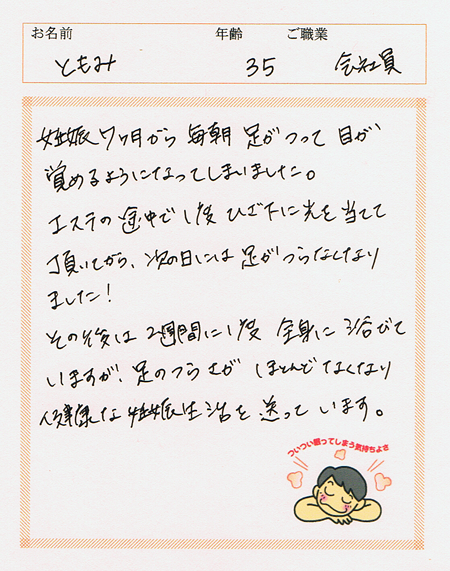 お名前 年齢 ご職業
ともみ 35 会社員
妊娠7ヶ月から 毎朝 足がつって 目が
覚めるようになってしまいました。
エステの途中で1度 ひざ下に光を当てて
頂いてから、次の日には 足がつらなくなり
ました!
その後は 2週間に1度 全身に浴びて
いますが、足のつらさが ほとんどなくなり
健康な妊娠生活を送っています。
ついつい眠ってしまう気持ちよさ